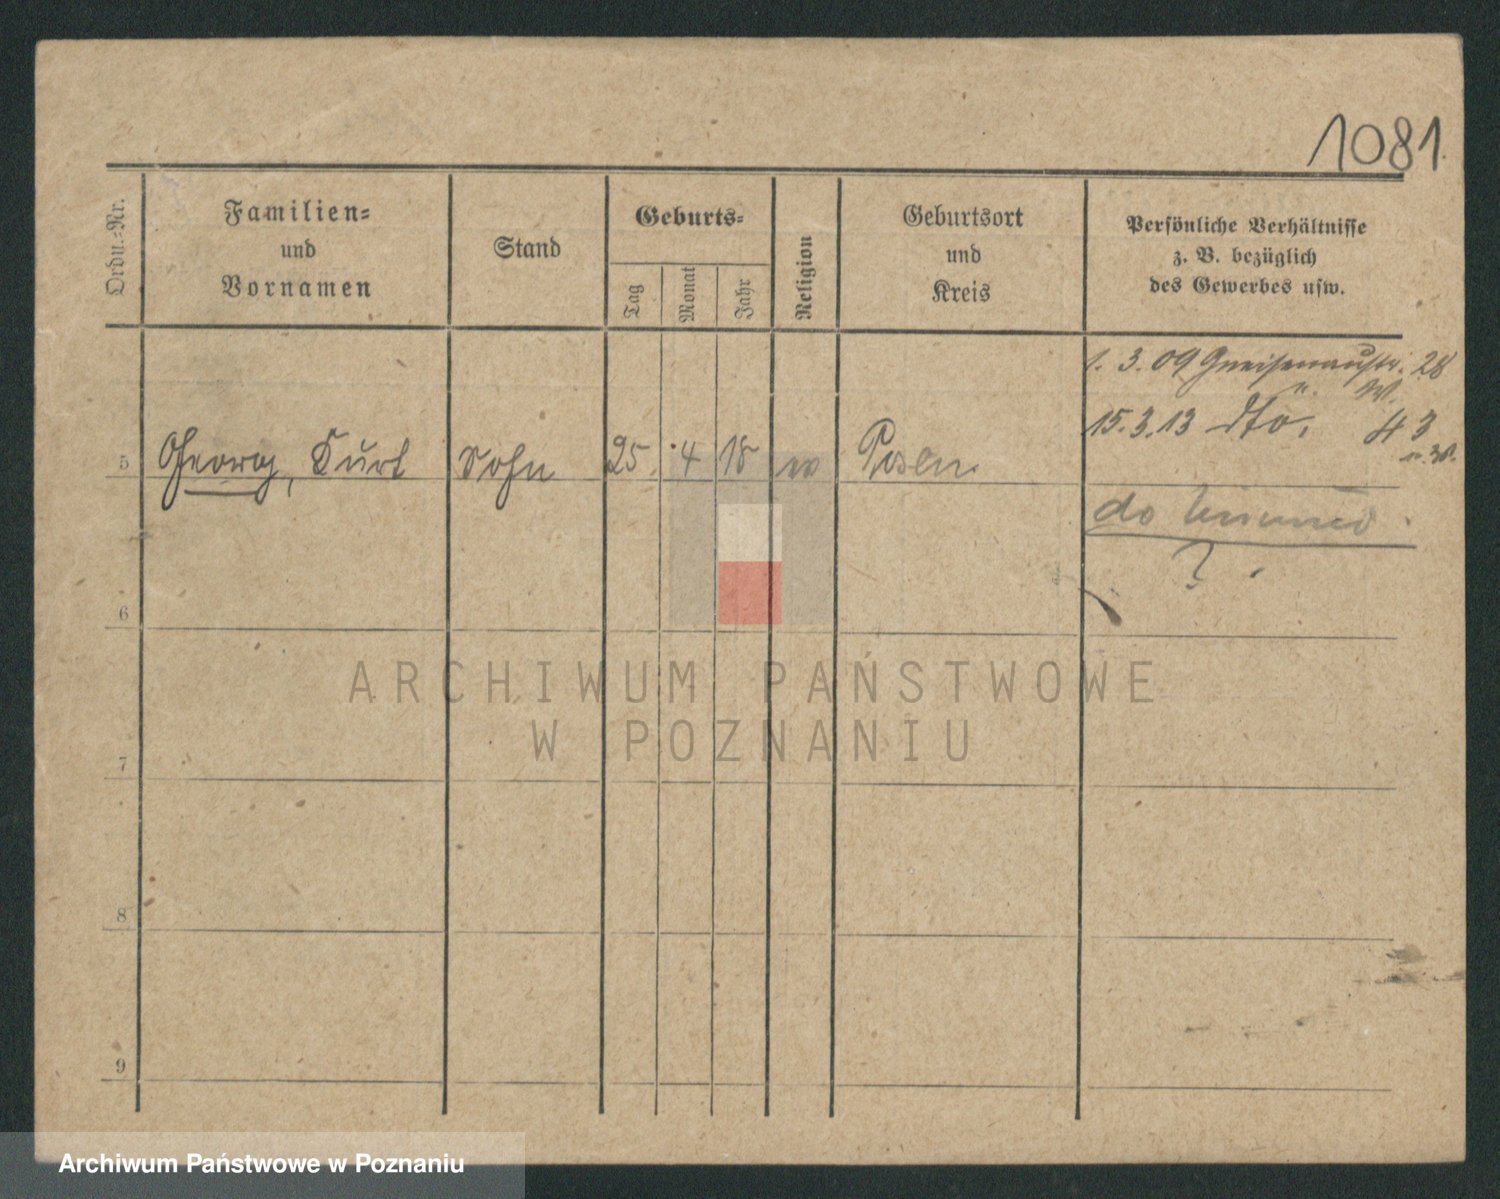 1081.
Ordn.-Nr.
Familien-
und
Vornamen
Stand
Geburts-
Tag
Monat
Jahr
Religion
Geburtsort
und
Kreis
Persönliche Verhältnisse
z. B. bezüglich
des Gewerbes usw.
1. 3. 09 Gneisenaustr. 28
W.
15.3.13 dto. 43
5 Georg, Kurt Sohn 25. 4 18 Posen
do
?
6
7
8
9
ARCHIWUM PAŃSTWOWE
W POZNANIU
Archiwum Państwowe w Poznaniu